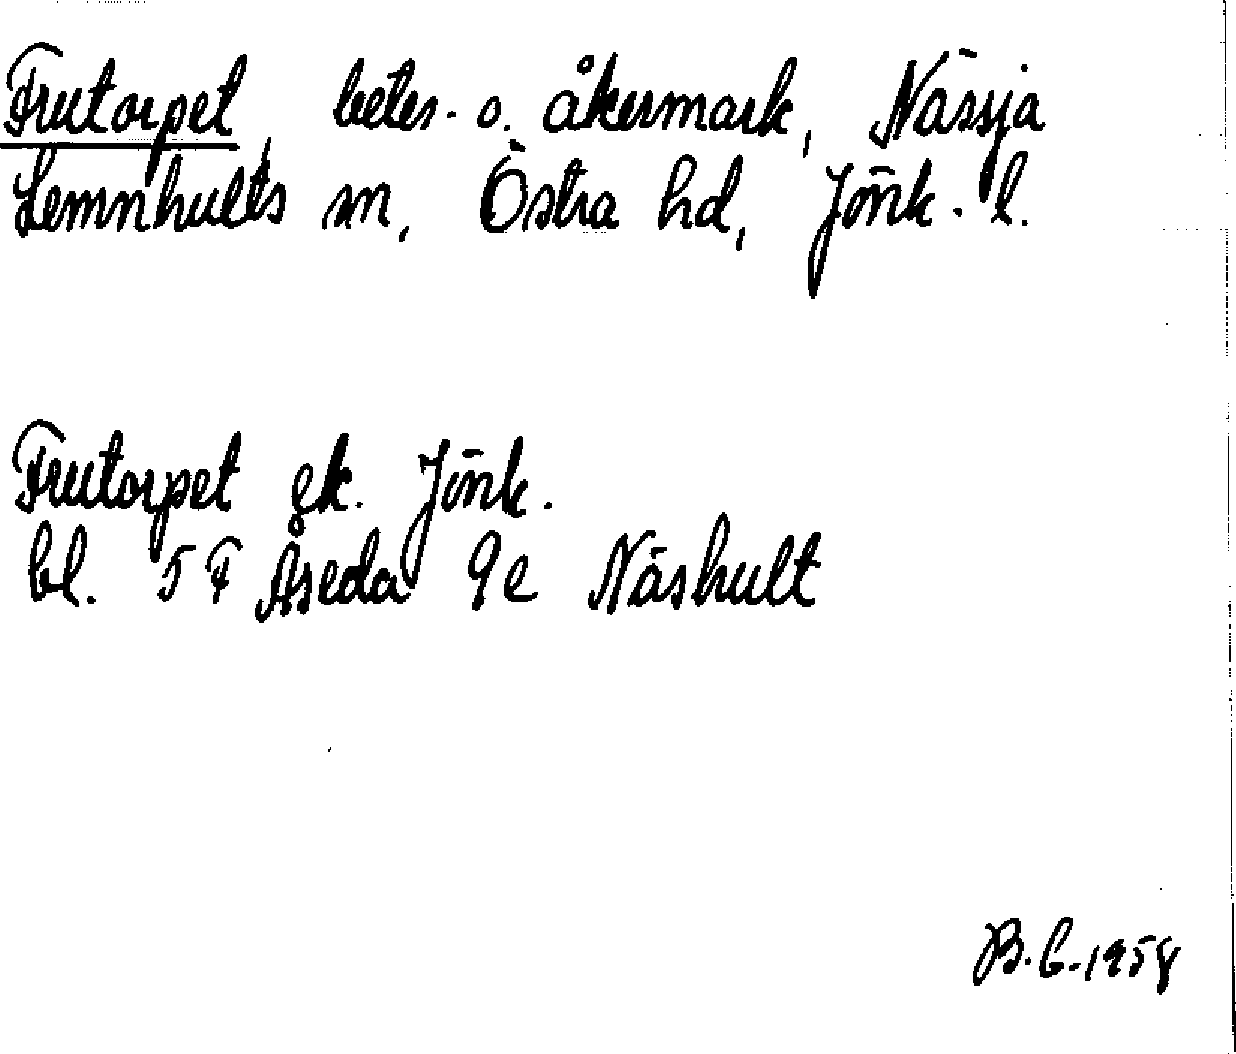 Frutorpet, betes- o. åkermark, Nässja
Lemnhults sn, Östra hd, Jönk. l.
Frutorpet ek. Jönk.
bl. 5 F Åseda 9e Näshult
B.G. 1958